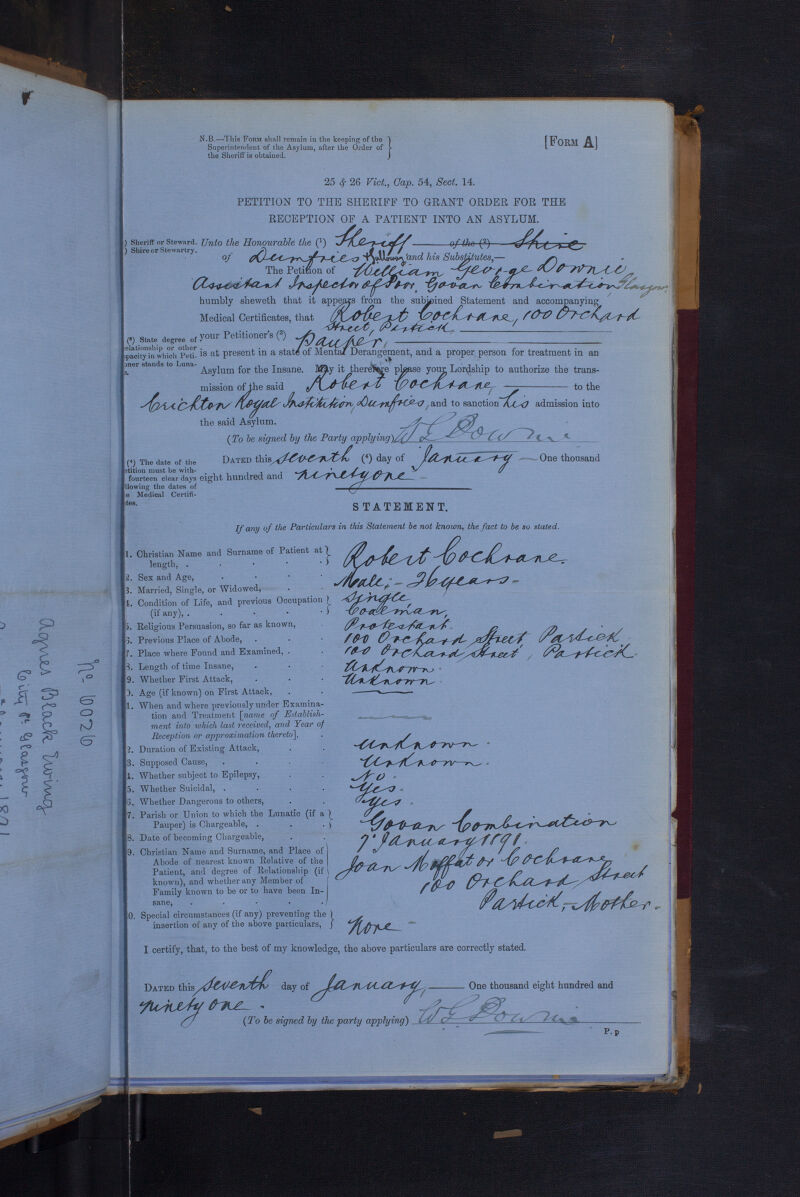 N.B.—This Form shall remain in the keeping of the
Superintendent of the Asylum, after the Order of
the Sheriff is obtained.
[Form A]
25 & 26 Vict., Cap. 54, Sect. 14.
PETITION TO THE SHERIFF TO GRANT ORDER FOR THE
RECEPTION OF A PATIENT INTO AN ASYLUM.
) Sheriff or Steward.
) Shire or Stewartry.
Unto the Honourable the (1) Sheriff — of the (2) Shire
of Dumfries & Galloway and his Substitutes,—
The Petition of William George Downie
Assistant Inspector of Poor, Govan Combination Glasgow
humbly sheweth that it appears from the subjoined Statement and accompanying
Medical Certificates, that Robert Cochrane, 100 Orchard
Street, Partick,
(3) State degree of
elationship or other
pacity in which Peti-
oner stands to Luna-
your Petitioner's (3) Pauper,
is at present in a state of Mental Derangement, and a proper person for treatment in an
Asylum for the Insane. May it therefore please your Lordship to authorize the trans-
mission of the said Robert Cochrane, — to the
Crichton Royal Institution, Dumfries, and to sanction his admission into
the said Asylum.
(To be signed by the Party applying) W G Downie
(4) The date of the
etition must be with-
fourteen clear days
llowing the dates of
e Medical Certifi-
tes.
Dated this seventh (4) day of January — One thousand
eight hundred and ninety one —
STATEMENT.
If any of the Particulars in this Statement be not known, the fact to be so stated.
1. Christian Name and Surname of Patient at
length, . Robert Cochrane.
2. Sex and Age, Male; – 26 years –
3. Married, Single, or Widowed, Single
4. Condition of Life, and previous Occupation
(if any), . Coalman,
5. Religious Persuasion, so far as known, Protestant
6. Previous Place of Abode, . 100 Orchard Street, Partick
7. Place where Found and Examined, . 100 Orchard Street, Partick
8. Length of time Insane, Unknown.
9. Whether First Attack, Unknown.
0. Age (if known) on First Attack,
1. When and where previously under Examina-
tion and Treatment [name of Establish-
ment into which last received, and Year of
Reception or approximation thereto],
2. Duration of Existing Attack, Unknown.
3. Supposed Cause, Unknown.
4. Whether subject to Epilepsy, No.
5. Whether Suicidal, . Yes.
6. Whether Dangerous to others, Yes.
7. Parish or Union to which the Lunatic (if a
Pauper) is Chargeable, . Govan Combination
8. Date of becoming Chargeable, 7 January 1891.
9. Christian Name and Surname, and Place of
Abode of nearest known Relative of the
Patient, and degree of Relationship (if
known), and whether any Member of
Family known to be or to have been In-
sane,
Joan Moffat or Cochrane
100 Orchard Street
Partick, – Mother –
0. Special circumstances (if any) preventing the
insertion of any of the above particulars, None –
I certify, that, to the best of my knowledge, the above particulars are correctly stated.
Dated this seventh day of January, — One thousand eight hundred and
ninety one.
(To be signed by the party applying) W G Downie
P.p
No 10026
Agnes Black Ewing
City Ph Glasgow